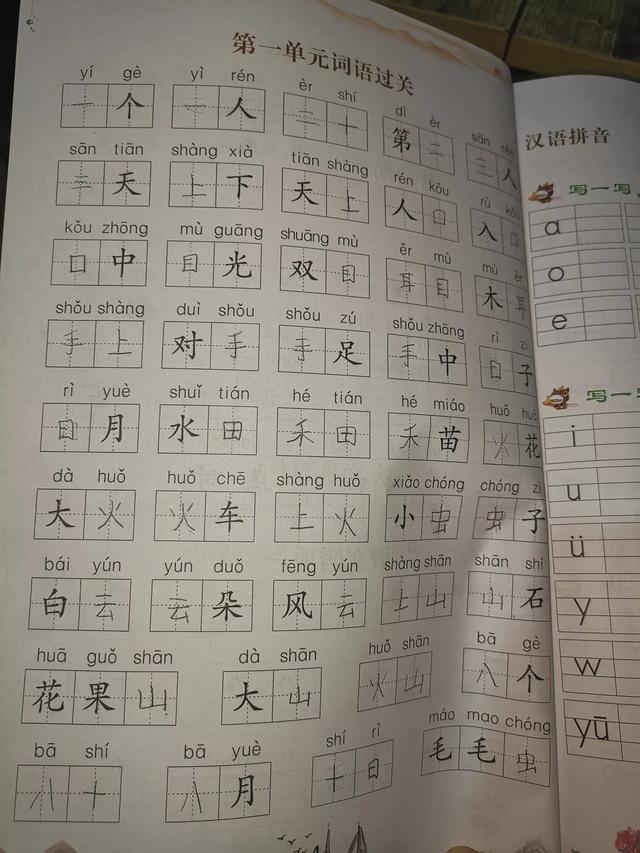 第一单元词语过关
yí gè yì rén èr shí dì èr sān rén
一个 一人 二十 第二 三人
sān tiān shàng xià tiān shàng rén kǒu rù kǒu
三天 上下 天上 人口 入口
kǒu zhōng mù guāng shuāng mù ěr mù mù ěr
口中 目光 双目 耳目 木耳
shǒu shàng duì shǒu shǒu zú shǒu zhōng rì zi
手上 对手 手足 手中 日子
rì yuè shuǐ tián hé tián hé miáo huǒ huā
日月 水田 禾田 禾苗 火花
dà huǒ huǒ chē shàng huǒ xiǎo chóng chóng zi
大火 火车 上火 小虫 虫子
bái yún yún duǒ fēng yún shàng shān shān shí
白云 云朵 风云 上山 山石
huā guǒ shān dà shān huǒ shān bā gè
花果山 大山 火山 八个
bā shí bā yuè shí rì máo mao chóng
八十 八月 十日 毛毛虫
汉语拼音
写一写
a
o
e
写一写
i
u
ü
y
w
yū